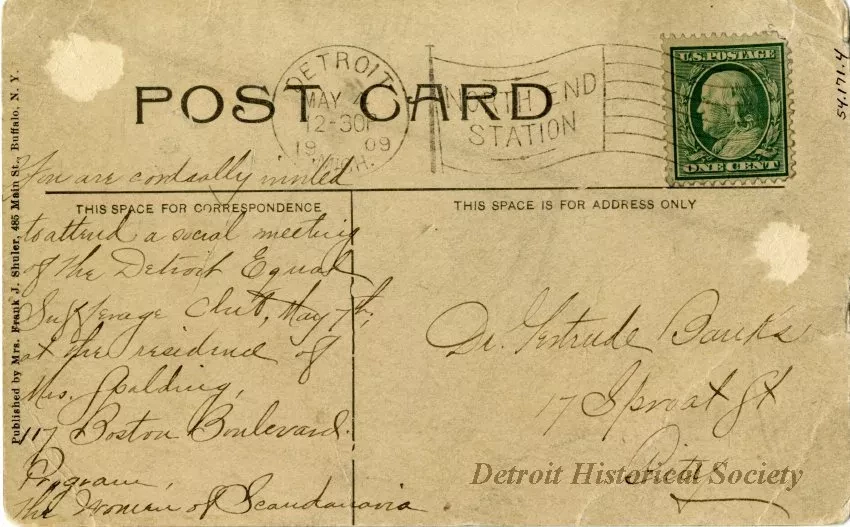 U.S. POSTAGE
ONE CENT
54.171.4
DETROIT
MAY
12-30P
19 09
MICH.
NORTH END
STATION
POST CARD
Published by Mrs. Frank J. Shuler, 485 Main St., Buffalo, N. Y.
THIS SPACE FOR CORRESPONDENCE
THIS SPACE IS FOR ADDRESS ONLY
You are cordually invited
to attend a social meeting
of the Detroit Equal
Sufferage Club, May 7th,
at the residence of
Mrs. Spalding,
117 Boston Boulevard.
Program,
The Women of Scandanavia
Dr. Gertrude Banks
17 Sproat St
City
Detroit Historical Society